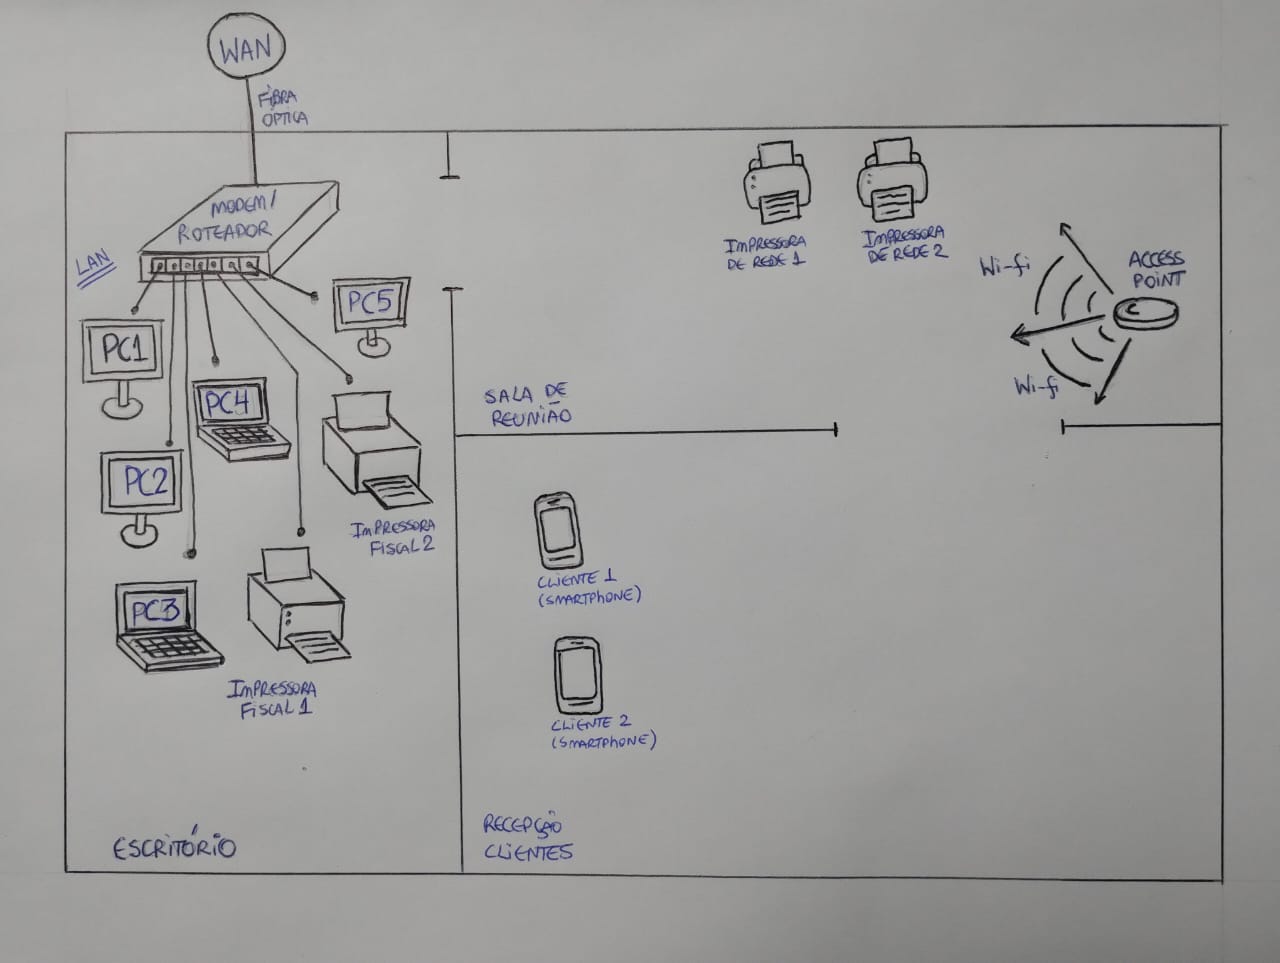 WAN
FIBRA
OPTICA
MODEM/
ROTEADOR
LAN
PC1
PC2
PC3
PC4
PC5
IMPRESSORA
FISCAL 2
IMPRESSORA
FISCAL 1
ESCRITÓRIO
IMPRESSORA
DE REDE 1
IMPRESSORA
DE REDE 2
Wi-fi
ACCESS
POINT
Wi-fi
SALA DE
REUNIÃO
CLIENTE 1
(SMARTPHONE)
CLIENTE 2
(SMARTPHONE)
RECEPÇÃO
CLIENTES